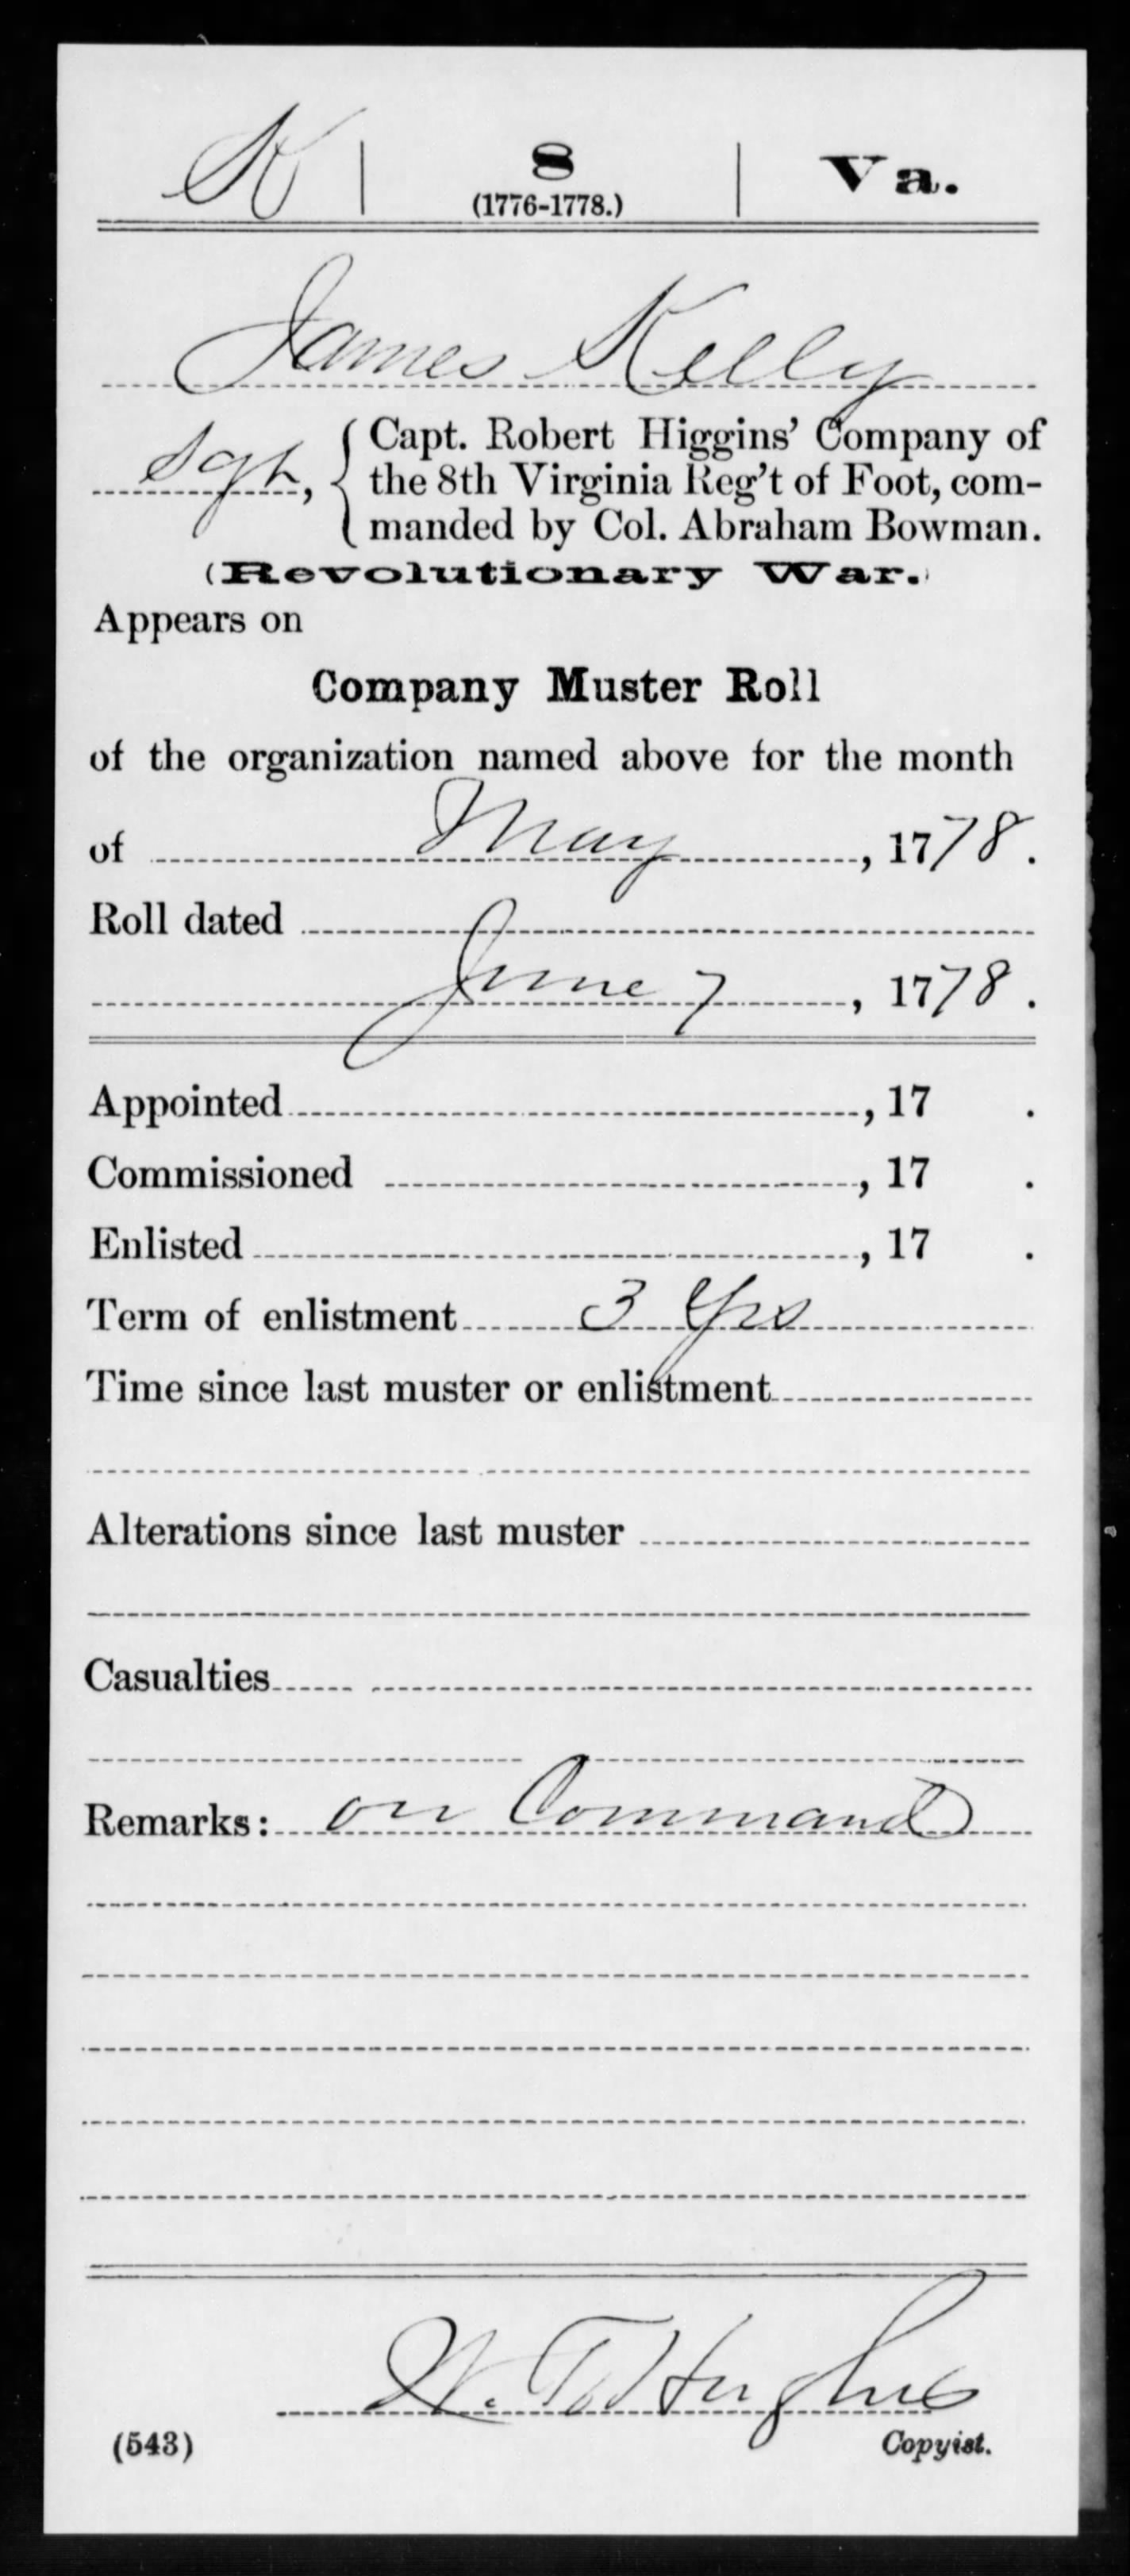 K | 8 | Va.
(1776-1778.)
James Kelly
Sgt, { Capt. Robert Higgins' Company of
the 8th Virginia Reg't of Foot, com-
manded by Col. Abraham Bowman.
(Revolutionary War.)
Appears on
Company Muster Roll
of the organization named above for the month
of May, 1778.
Roll dated
June 7, 1778.
Appointed , 17 .
Commissioned , 17 .
Enlisted , 17 .
Term of enlistment 3 Yrs
Time since last muster or enlistment
Alterations since last muster
Casualties
Remarks: on Command
Hughes
(543) Copyist.